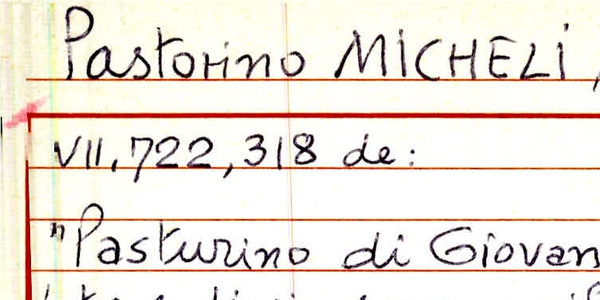 Pastorino MICHELI,
VII, 722, 318 de:
"Pasturino di Giovan